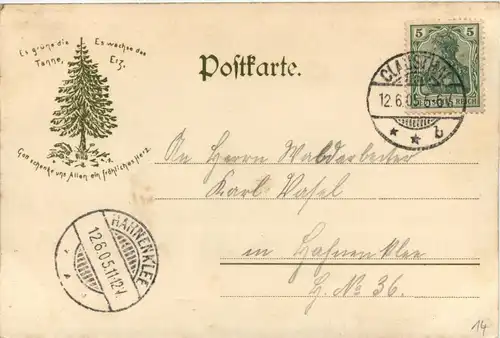 Es grüne die Tanne,
Es wachse das Erz,
Gott schenke uns Allen ein fröhliches Herz.
Postkarte.
5 5
REICH
CLAUSTHAL
12.6.05.5-6N.
* * b
An Herrn Waldarbeiter
Karl Vasel
in Hahnenklee
H. No 36.
HAHNENKLEE
12.6.05.11-12V.
14